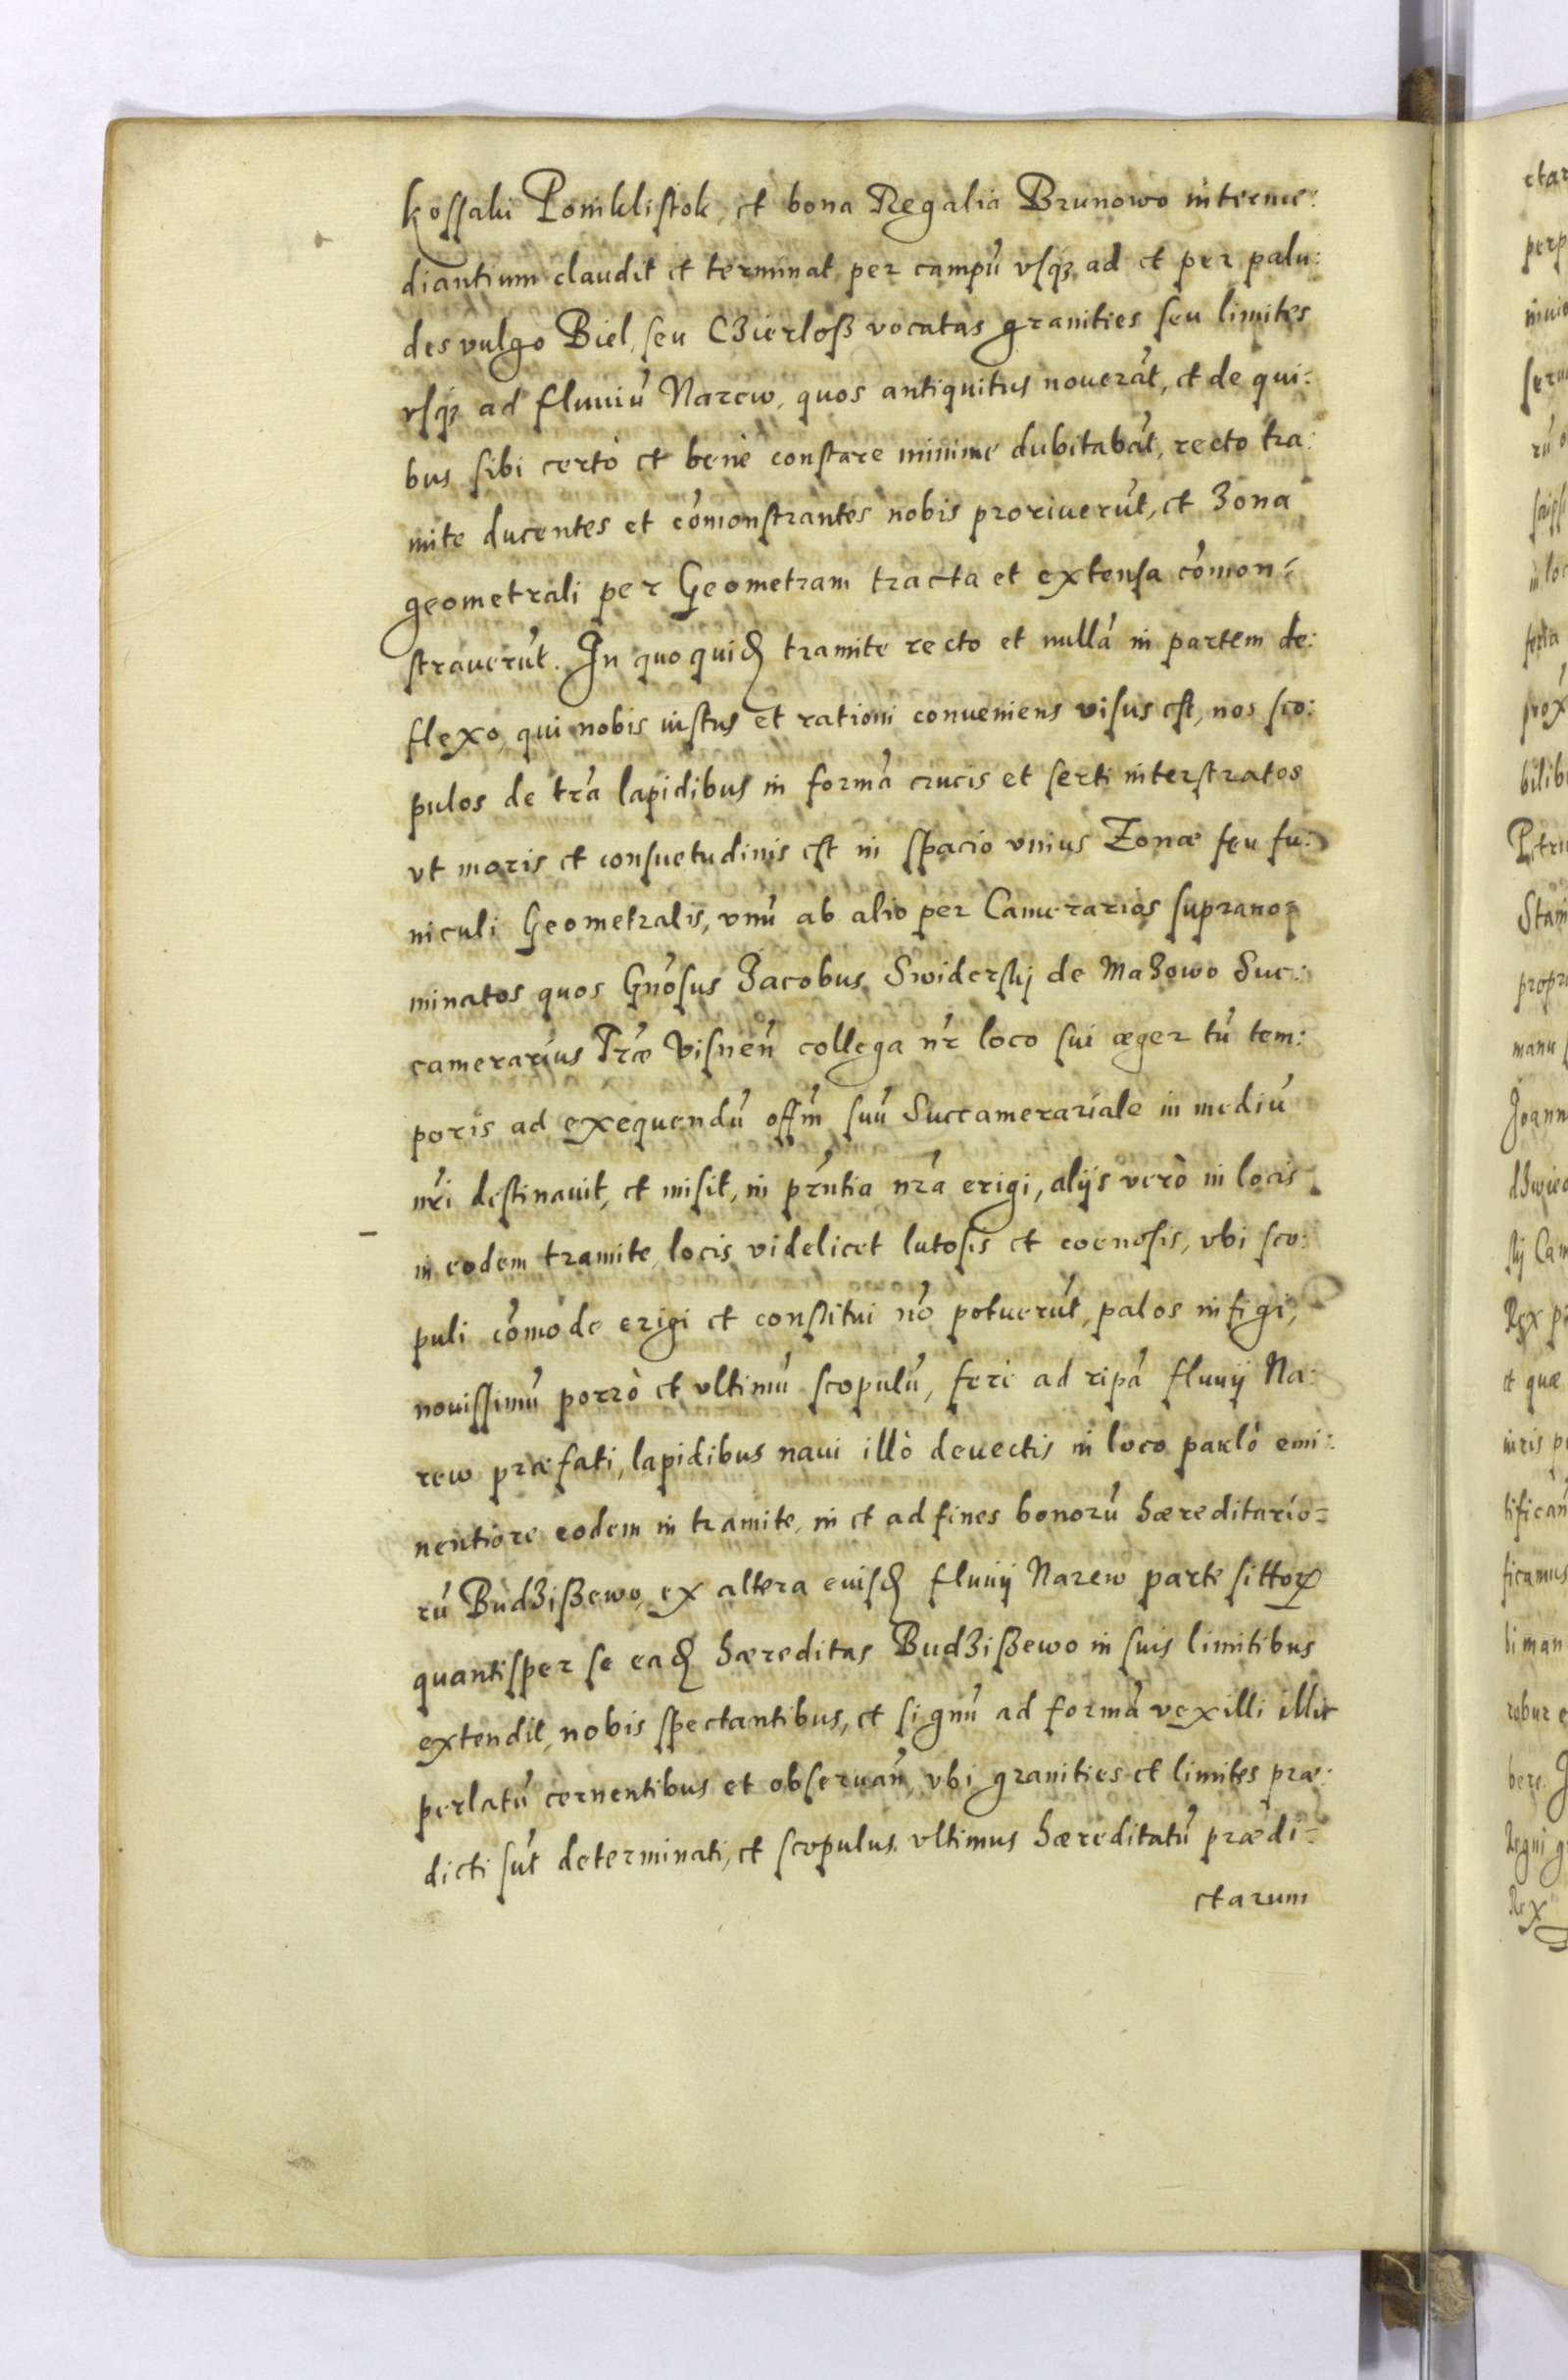 kossaki Poniklistok, et bona Regalia Brunowo interme:
diantium claudit et terminat per campū vsq3 ad et per palu:
des vulgo Biel, seu C3ierloß vocatas granities seu limites
vsq3 ad fluuiū Narew, quos antiquitus nouerāt, et de qui:
bus sibi certò et benè constare minime dubitabāt, recto tra:
mite ducentes et cōmonstrantes nobis proriuerūt, et 3ona
geometrali per Geometram tracta et extensa cōmon:
strauerūt. In quo quiđ tramite recto et nullā in partem de:
flexo, qui nobis iustus et rationi conueniens visus est, nos sco:
pulos de trā lapidibus in formā crucis et serti interstratos
vt moris et consuetudinis est in spacio vnius Zonæ seu fu:
niculi Geometralis, vnū ab alio per Camerarios suprano:
minatos quos Gnōsus Jacobus Swiderskj de Ma3owo Suc:
camerarius Trǣ Visneñ collega nr̄ loco sui æger tū tem:
poris ad exequendū offm̄ suū Succamerariale in mediū
nrī destinauit, et misit, in prn̄tia nrā erigi, alijs verò in locis
in eodem tramite, locis videlicet lutosis et coenosis, vbi sco:
puli cōmode erigi et constitui nō potuerūt, palos infigi,
nouissimū porrò et vltimū scopulū, ferè ad ripā fluuij Na:
rew præfati, lapidibus naui illò deuectis in loco paulò emi:
nentiore eodem in tramite, in et ad fines bonorū hæreditario:
rū Bud3ißewo, ex altera euisđ fluuij Narew parte sittorꝝ
quantisper se eađ hæreditas Bud3ißewo in suis limitibus
extendit, nobis spectantibus, et signū ad formā vexilli illic
perlatū cernentibus et obseruañ, vbi granities et limites præ:
dicti sūt determinati, et scopulus vltimus hæreditatū prædi:
ctarum